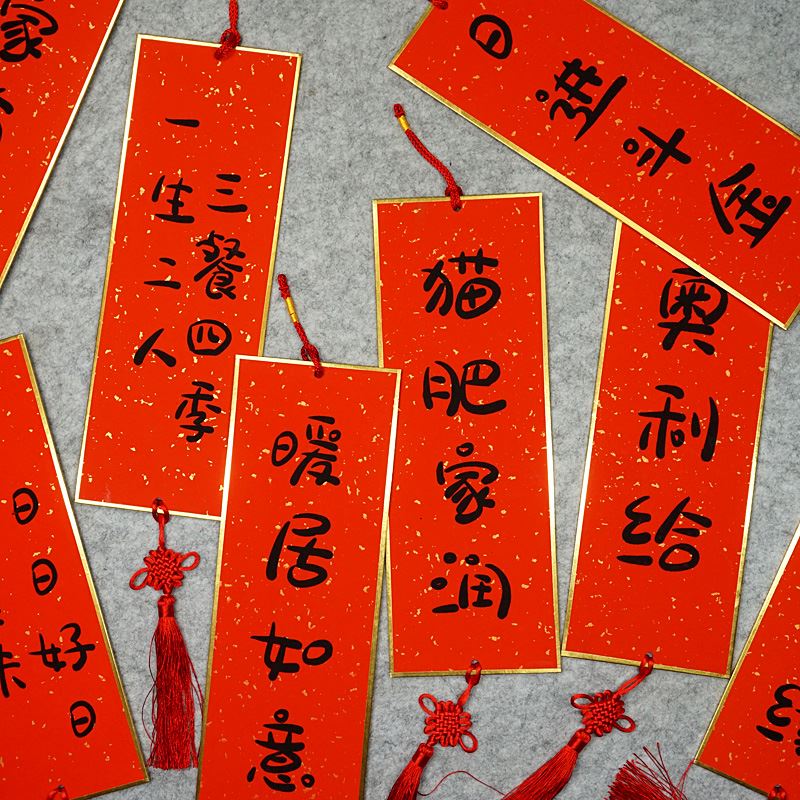 一生二人
三餐四季
日进斗金
猫肥家润
奥利给
暖居如意
日日好日